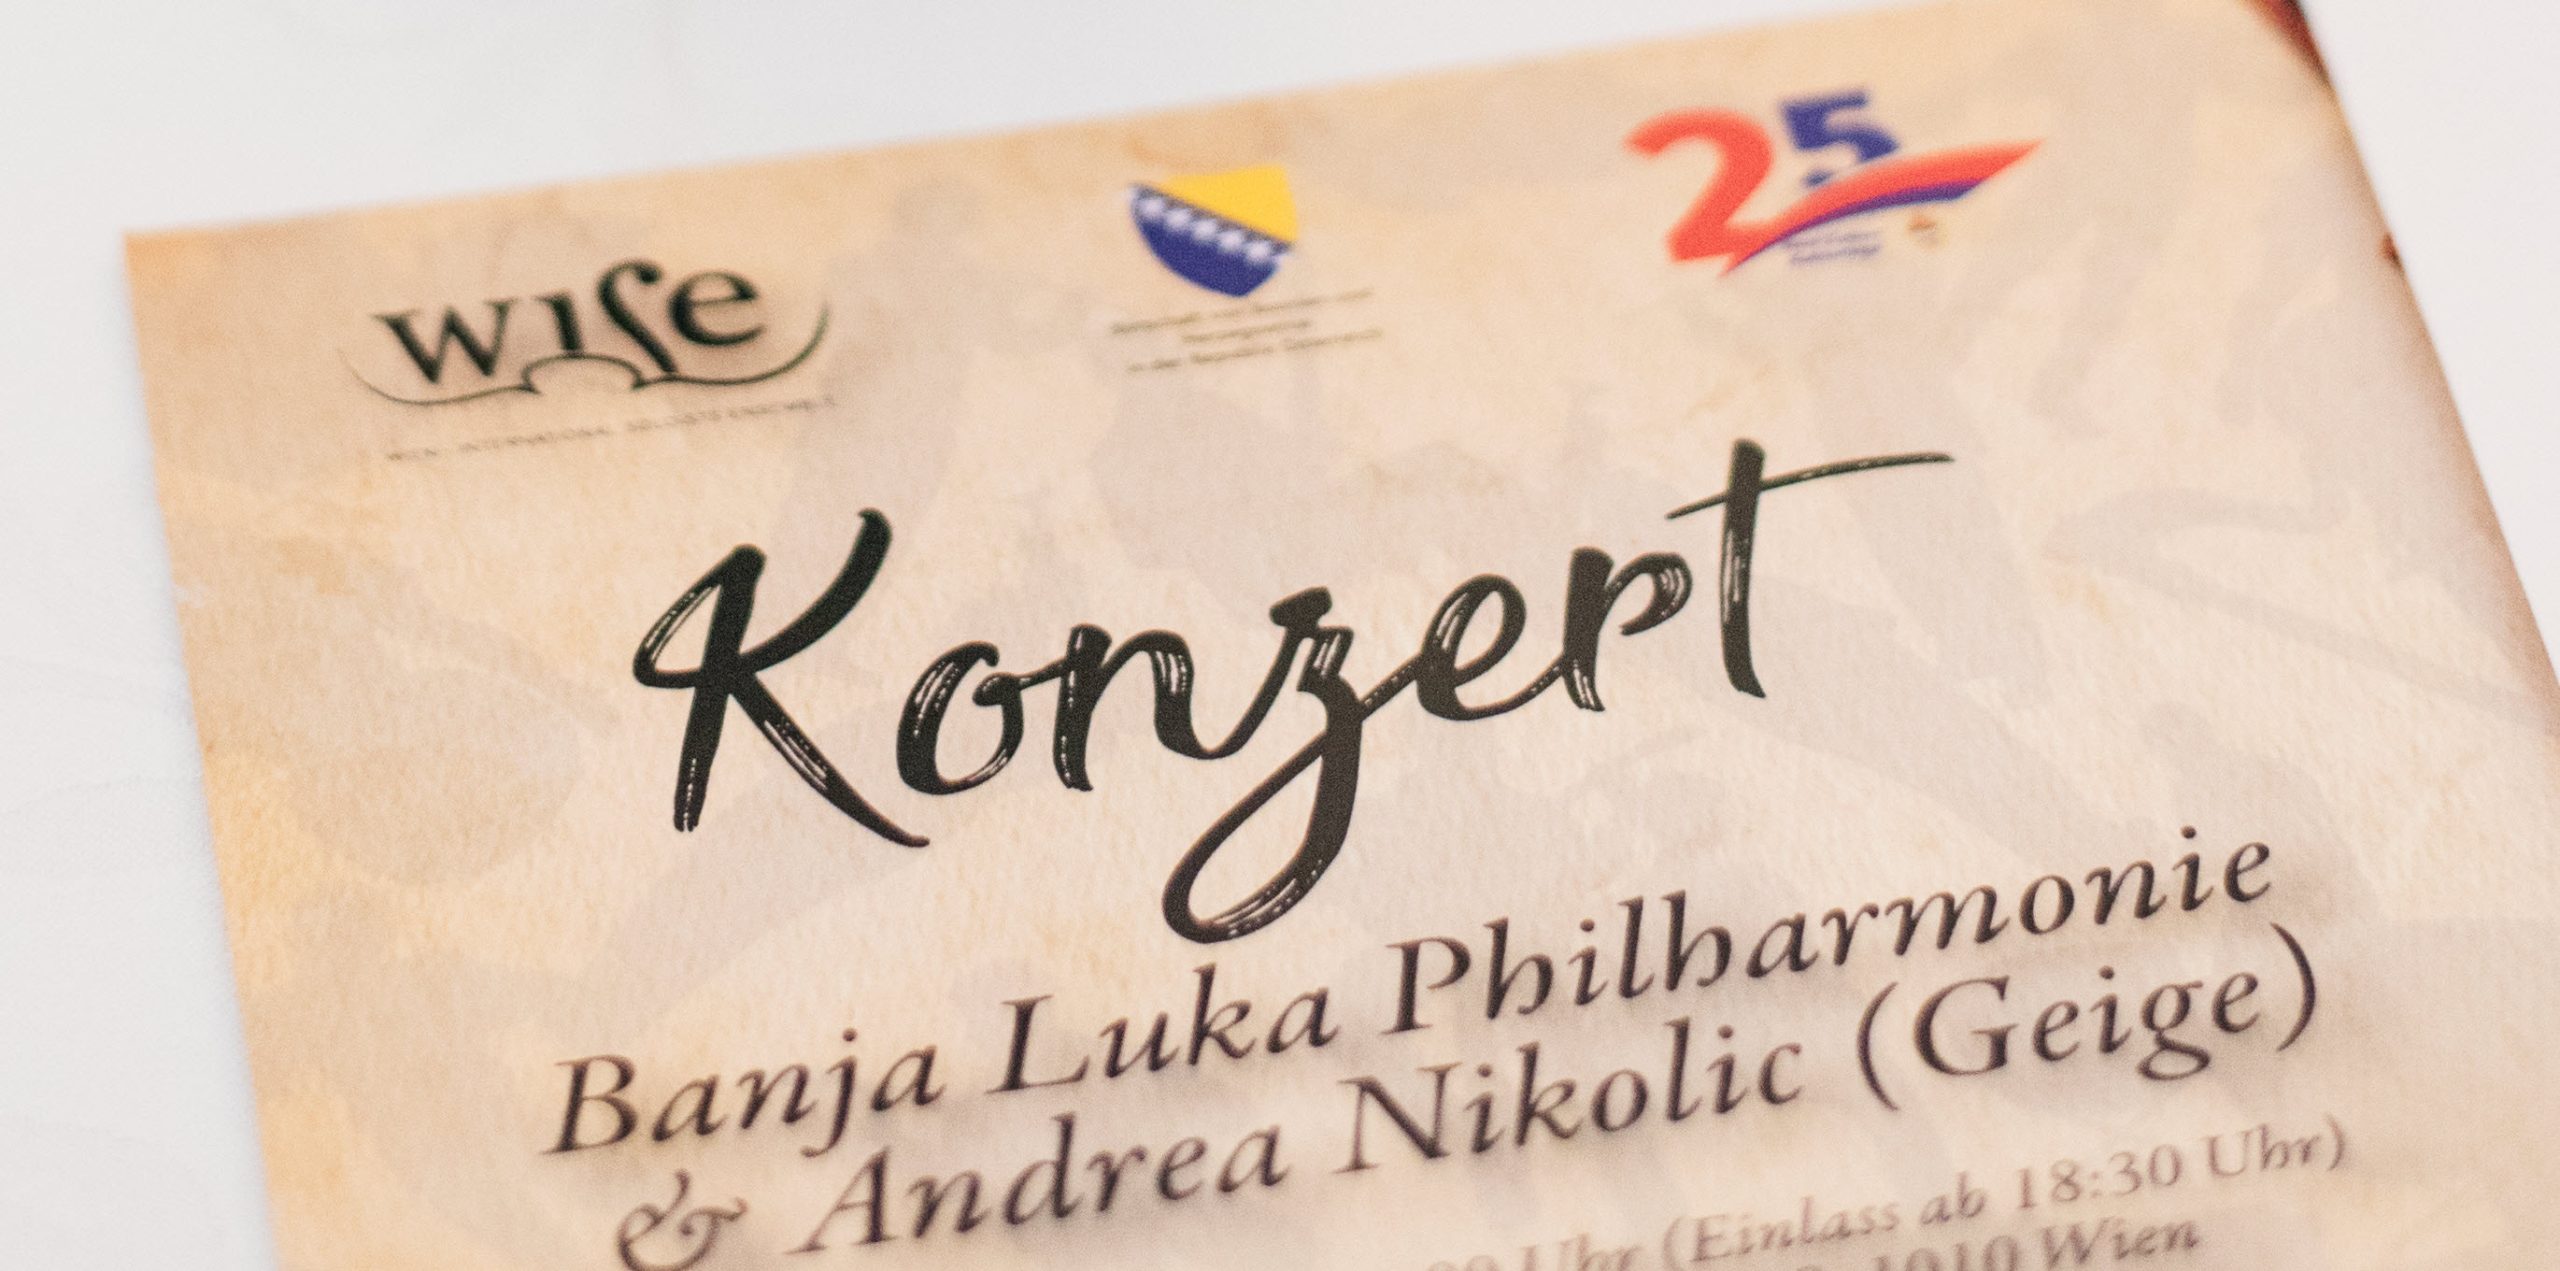 wise
25
Konzert
Banja Luka Philharmonie
& Andrea Nikolic (Geige)
Uhr (Einlass ab 18:30 Uhr)
1010 Wien